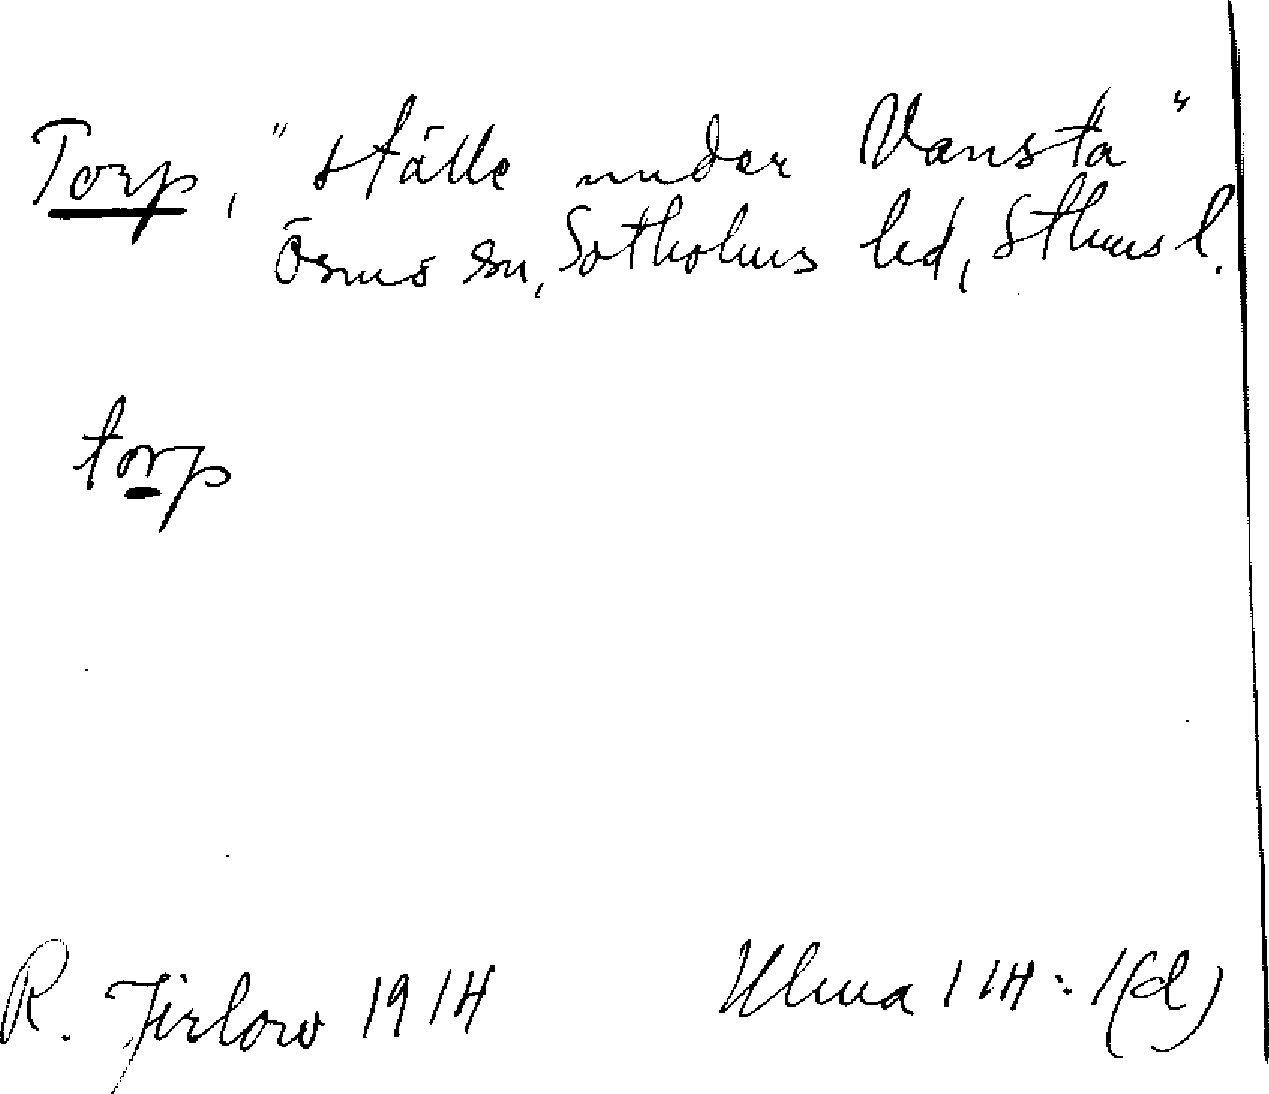 Torp, "ställe under Vansta"
Ösmo sn, Sotholms hd, Sthms l.
torp
R. Jirlow 1914
Ulma 114:1(d)